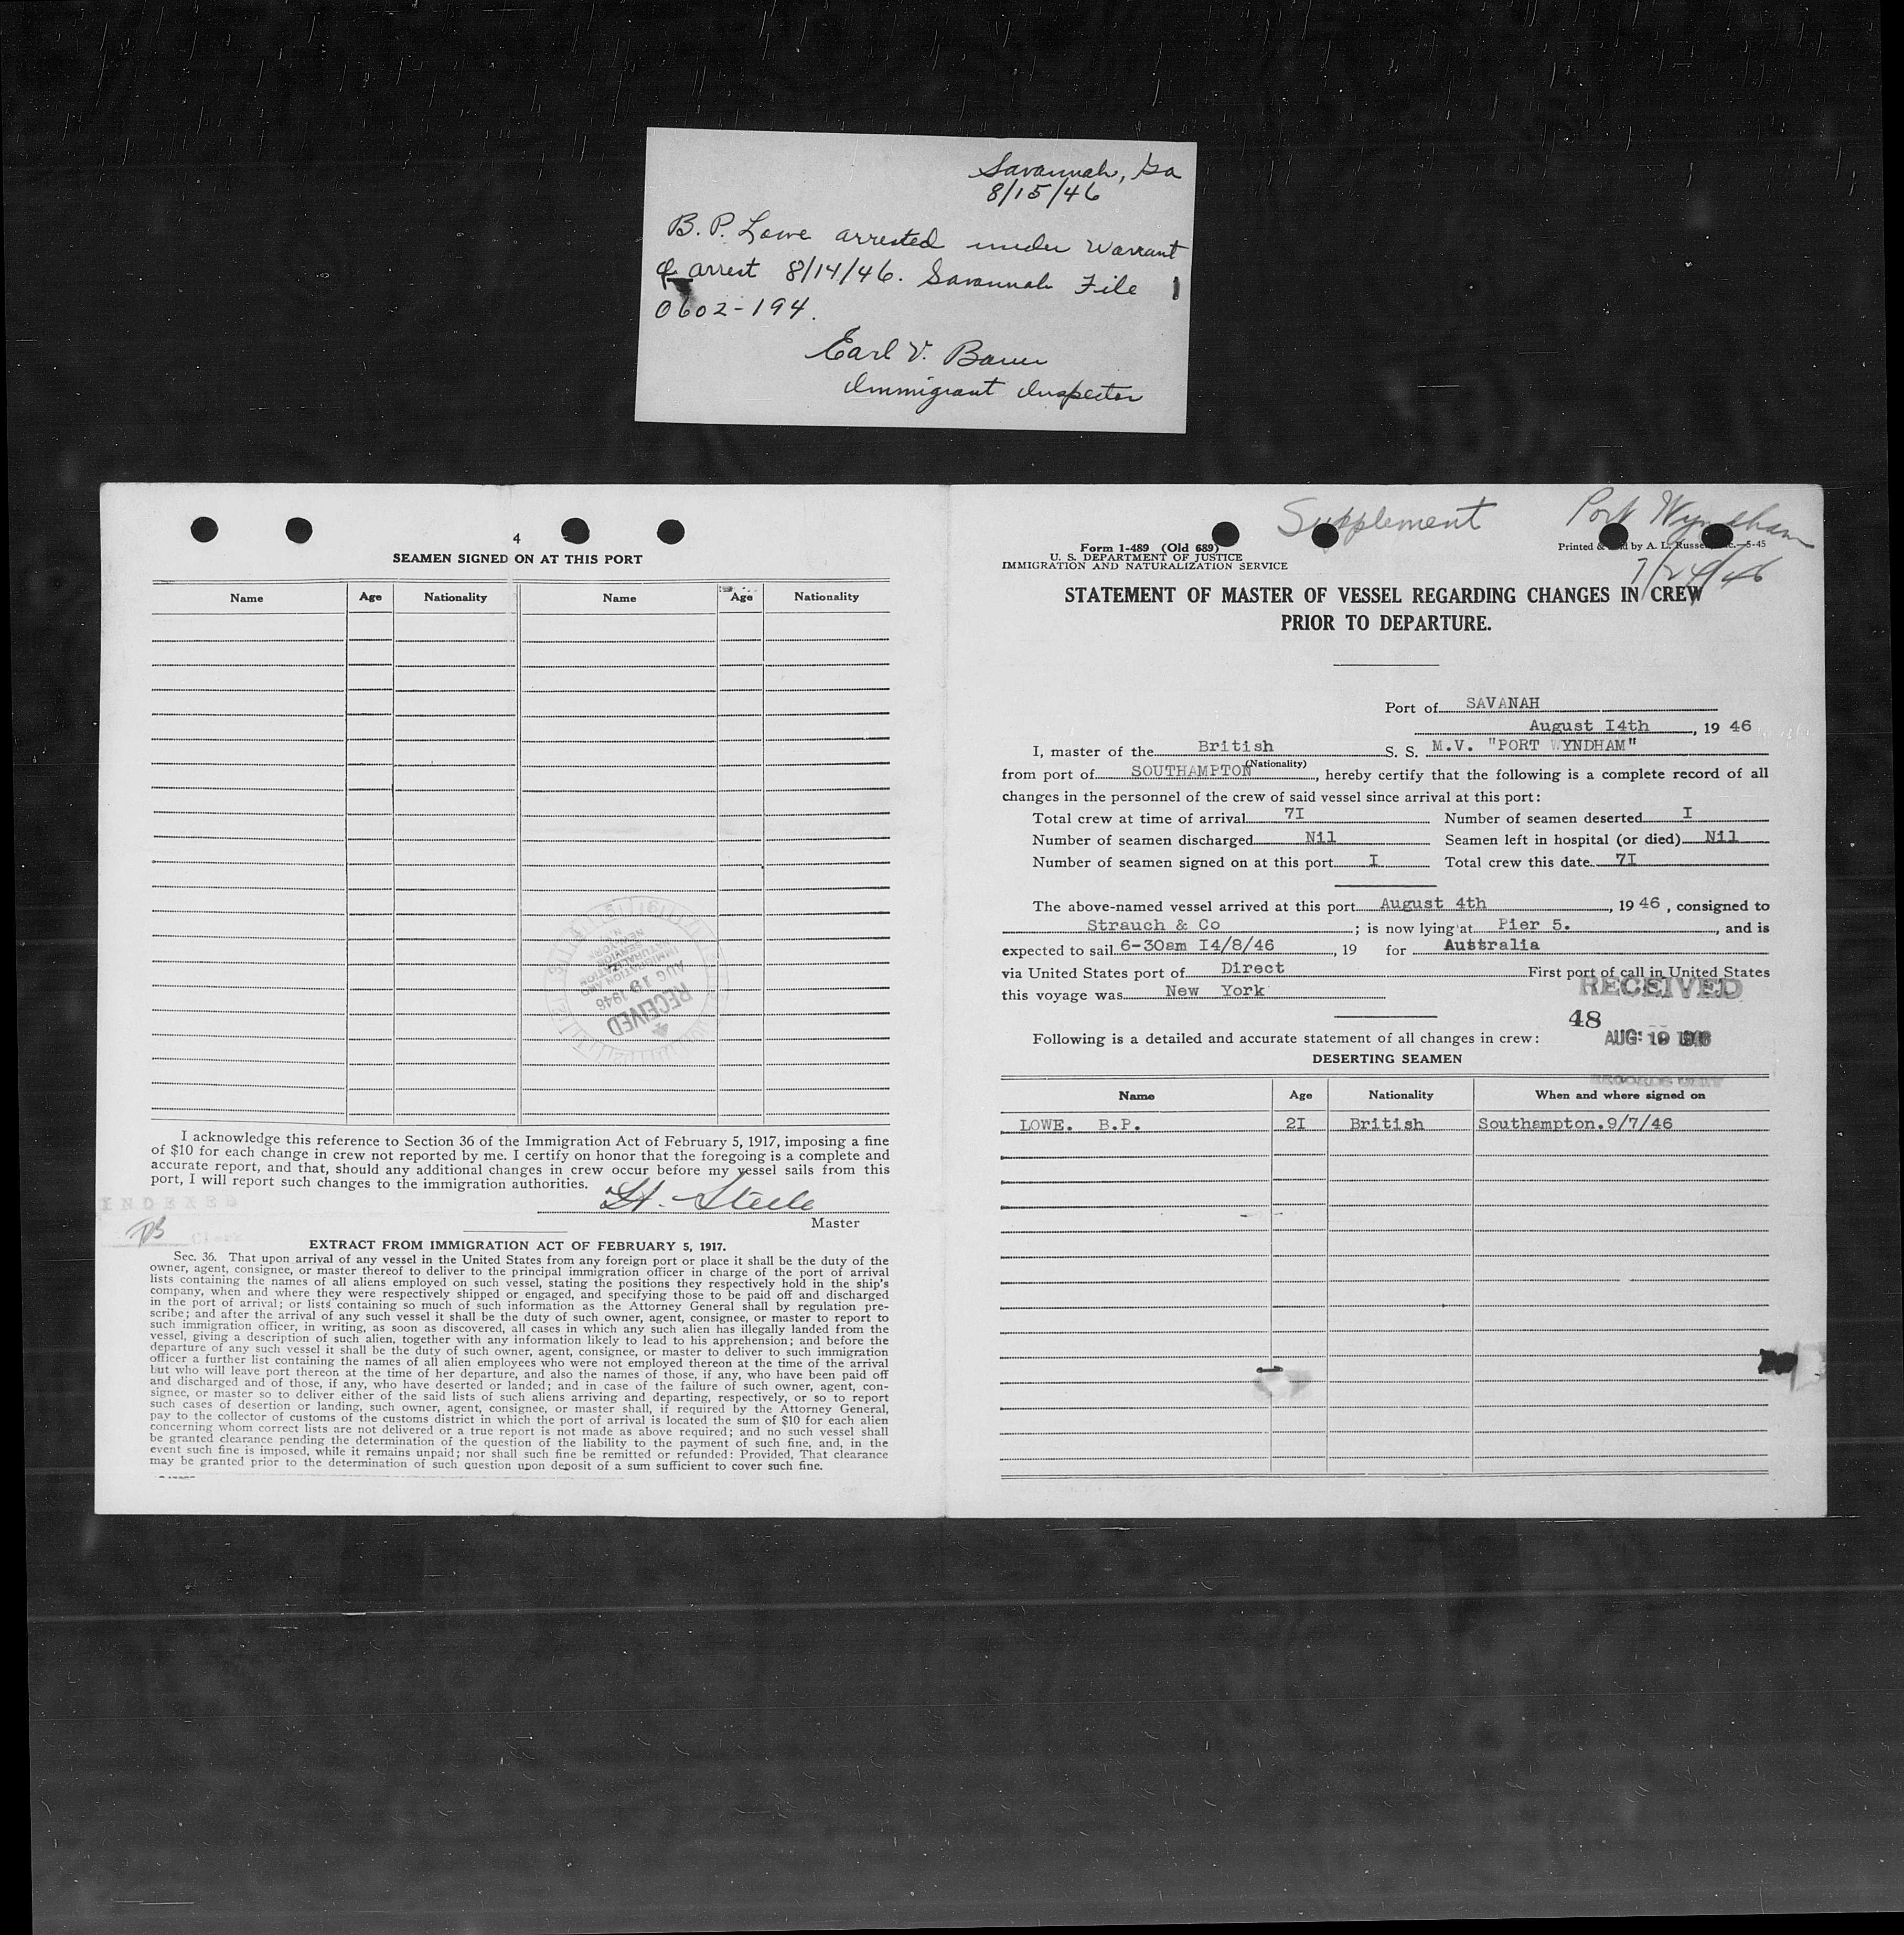 Savannah, Ga
8/15/46
B. P. Lowe arrested under Warrant
of arrest 8/14/46. Savannah File
0602-194.
Earl V.
Immigrant Inspector
4
SEAMEN SIGNED ON AT THIS PORT
Name Age Nationality Name Age Nationality
RECEIVED
AUG 19 1946
IMMIGRATION AND
NATURALIZATION
I acknowledge this reference to Section 36 of the Immigration Act of February 5, 1917, imposing a fine
of $10 for each change in crew not reported by me. I certify on honor that the foregoing is a complete and
accurate report, and that, should any additional changes in crew occur before my vessel sails from this
port, I will report such changes to the immigration authorities.
INDEXED
Steele
Master
Clerk
EXTRACT FROM IMMIGRATION ACT OF FEBRUARY 5, 1917.
Sec. 36. That upon arrival of any vessel in the United States from any foreign port or place it shall be the duty of the
owner, agent, consignee, or master thereof to deliver to the principal immigration officer in charge of the port of arrival
lists containing the names of all aliens employed on such vessel, stating the positions they respectively hold in the ship's
company, when and where they were respectively shipped or engaged, and specifying those to be paid off and discharged
in the port of arrival; or lists containing so much of such information as the Attorney General shall by regulation pre-
scribe; and after the arrival of any such vessel it shall be the duty of such owner, agent, consignee, or master to report to
such immigration officer, in writing, as soon as discovered, all cases in which any such alien has illegally landed from the
vessel, giving a description of such alien, together with any information likely to lead to his apprehension; and before the
departure of any such vessel it shall be the duty of such owner, agent, consignee, or master to deliver to such immigration
officer a further list containing the names of all alien employees who were not employed thereon at the time of the arrival
but who will leave port thereon at the time of her departure, and also the names of those, if any, who have been paid off
and discharged and of those, if any, who have deserted or landed; and in case of the failure of such owner, agent, con-
signee, or master so to deliver either of the said lists of such aliens arriving and departing, respectively, or so to report
such cases of desertion or landing, such owner, agent, consignee, or master shall, if required by the Attorney General,
pay to the collector of customs of the customs district in which the port of arrival is located the sum of $10 for each alien
concerning whom correct lists are not delivered or a true report is not made as above required; and no such vessel shall
be granted clearance pending the determination of the question of the liability to the payment of such fine, and, in the
event such fine is imposed, while it remains unpaid; nor shall such fine be remitted or refunded: Provided, That clearance
may be granted prior to the determination of such question upon deposit of a sum sufficient to cover such fine.
Supplement Port Wyndham
7/24/46
Form 1-489 (Old 689) Printed & by A. L. 5-45
U. S. DEPARTMENT OF JUSTICE
IMMIGRATION AND NATURALIZATION SERVICE
STATEMENT OF MASTER OF VESSEL REGARDING CHANGES IN CREW
PRIOR TO DEPARTURE.
Port of SAVANAH
August I4th, 19 46
I, master of the British S. S. M.V. "PORT WYNDHAM"
(Nationality)
from port of SOUTHAMPTON, hereby certify that the following is a complete record of all
changes in the personnel of the crew of said vessel since arrival at this port:
Total crew at time of arrival 7I Number of seamen deserted I
Number of seamen discharged Nil Seamen left in hospital (or died) Nil
Number of seamen signed on at this port I Total crew this date 7I
The above-named vessel arrived at this port August 4th, 19 46, consigned to
Strauch & Co; is now lying at Pier 5., and is
expected to sail 6-30am I4/8/46, 19 for Australia
via United States port of Direct First port of call in United States
this voyage was New York
RECEIVED
48
AUG 19 1946
Following is a detailed and accurate statement of all changes in crew:
DESERTING SEAMEN
Name Age Nationality When and where signed on
LOWE. B.P. 2I British Southampton.9/7/46